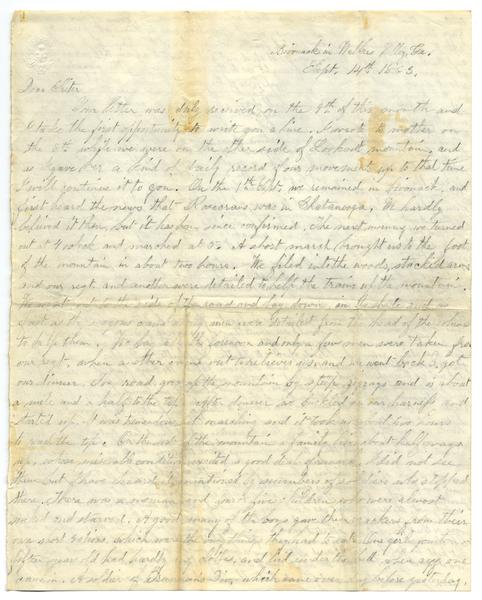 Bivouack in Wills Vlly, Ga.
Sept. 14th 1863.
Dear Sister
Your letter was duly received on the 9th of this month and
I take the first opportunity to write you a line. I wrote to mother on
the 8th while we were on the other side of Lookout mountain, and
as I gave her a kind of daily record of our movements up to that time
I will continue it to you. On the 9th Sept. we remained in bivouack, and
first heard the news that Rosecrans was in Chatanooga. We hardly
believed it then, but it has been since confirmed. The next morning we turned
out at 4 o'clock and marched at 5. A short march brought us to the foot
of the mountain in about two hours. We filed into the woods, stacked arms
and our regt. and another were detailed to help the trains up the mountain.
We went out to the side of the road and lay down in the shade and as
fast as the wagons came up men were detailed from the head of the column
to help them. We lay all the forenoon and only a few men were taken from
our regt. when another came out to relieve us, and we went back & got
our dinner. The road goes up the mountain by steep zigzags and is about
a mile and a half to the top. After dinner we buckled on our harness and
started up. It was tremendous hot marching and it took us about two hours
to reach the top. On the side of the mountain a family lives about half way
up, whose miserable condition excited a good deal of remark. I did not see
them but I have heard it mentioned by numbers of soldiers who stopped
there. There was a woman and four or five children who were almost
naked and starved. A good many of the boys gave them crackers from their
own short rations, which were the only things they had to eat. One girl fourteen or
fifteen year old had hardly any clothes, and hid under the bed when any one
came in. A soldier of Brannan's Div. which came over day before yesterday,